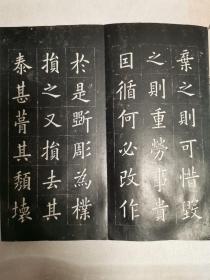 棄之則可惜毀
之則重勞事貴
因循何必改作
於是斲彫為樸
損之又損去其
泰甚葺其頹壞